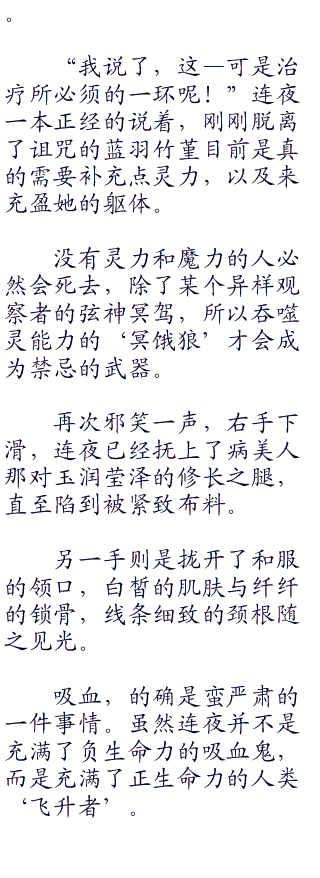 。
“我说了，这一可是治
疗所必须的一环呢！”连夜
一本正经的说着，刚刚脱离
了诅咒的蓝羽竹堇目前是真
的需要补充点灵力，以及来
充盈她的躯体。
没有灵力和魔力的人必
然会死去，除了某个异样观
察者的弦神冥驾，所以吞噬
灵能力的‘冥饿狼’才会成
为禁忌的武器。
再次邪笑一声，右手下
滑，连夜已经抚上了病美人
那对玉润莹泽的修长之腿，
直至陷到被紧致布料。
另一手则是拢开了和服
的领口，白皙的肌肤与纤纤
的锁骨，线条细致的颈根随
之见光。
吸血，的确是蛮严肃的
一件事情。虽然连夜并不是
充满了负生命力的吸血鬼，
而是充满了正生命力的人类
‘飞升者’。